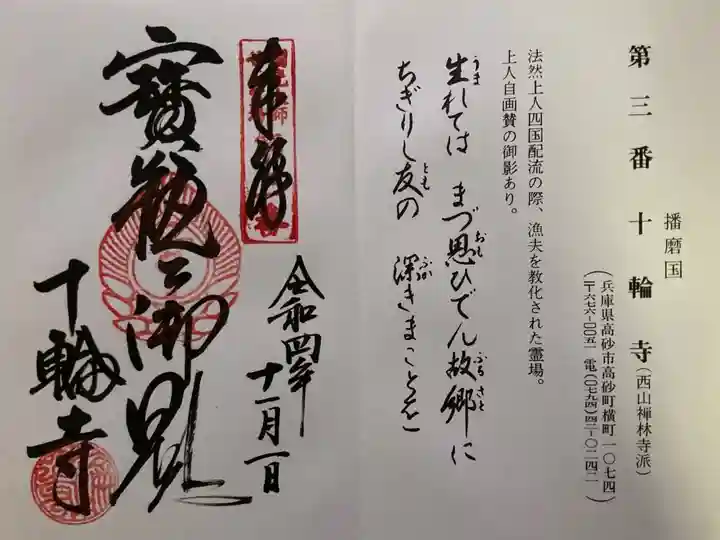 第三番十輪寺(西山禅林寺派)
播磨国
(兵庫県高砂市高砂町横町一〇七四
〒六七六-〇〇五一 電(〇七九四)四二-〇二四二)
法然上人四国配流の際、漁夫を教化された霊場。
上人自画賛の御影あり。
生れてはまづ思ひでん故郷に
うま おも ふるさと
ちぎりし友の深きまことを
とも ふか
奉拝
令和四年
十一月一日
寶瓶之御影
十輪寺